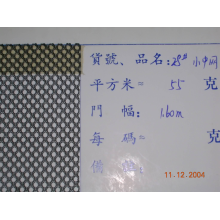 貨號、品名:28# 小中网
平方米= 55 克
門 幅: 1.60m
每 碼= 克
備
11.12.2004